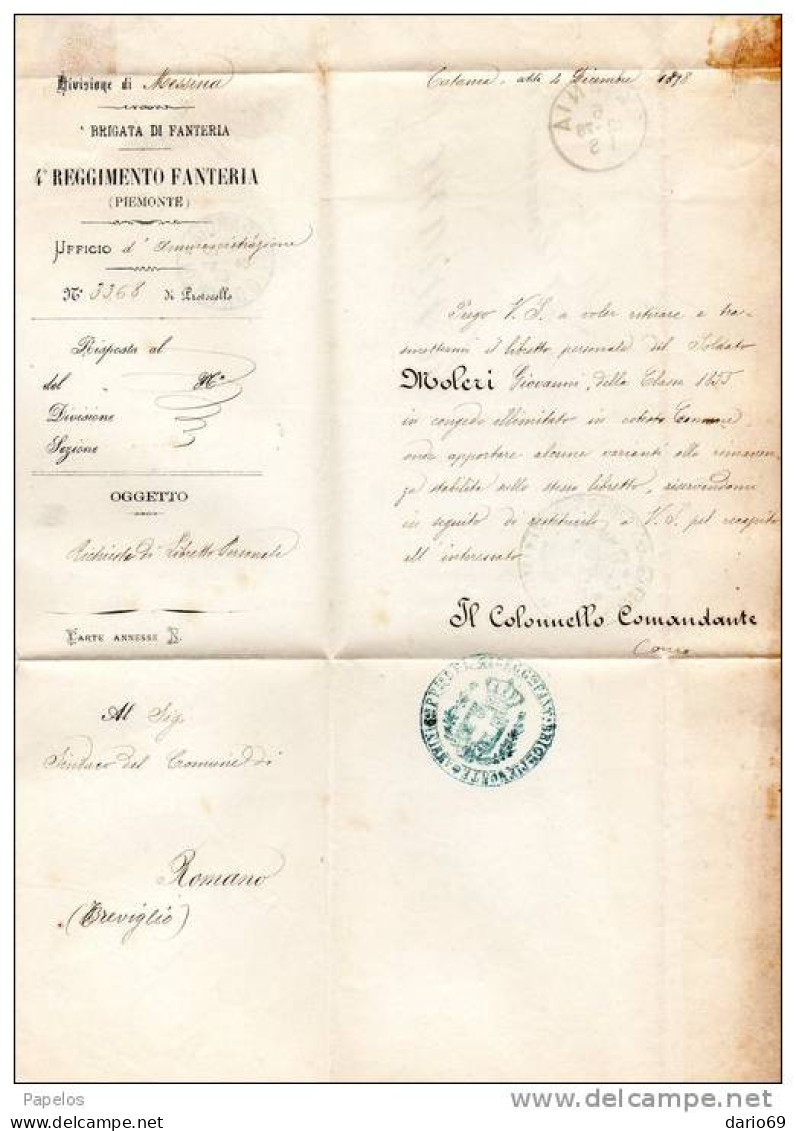 Divisione di Messina
BRIGATA DI FANTERIA
4° REGGIMENTO FANTERIA
(PIEMONTE)
UFFICIO d'Amministrazione
N° 3368 di Protocollo
Risposta al
del N°
Divisione
Sezione
OGGETTO
Richiesta di Libretto Personale
CARTE ANNESSE N.
Al Sig.
Sindaco del Comune di
Romano
(Treviglio)
Catania, addì 4 Dicembre 1878
Prego V. S. a voler ritirare e tra-
smettermi il libretto personale del Soldato
Moleri Giovanni, della Classe 1855
in congedo illimitato in cotesto Comune,
onde apportare alcune varianti alla rimanen-
za stabilita sullo stesso libretto, riservandomi
in seguito di restituirlo a V. S. pel recapito
all'interessato.
Il Colonnello Comandante
Papelos
www.delcampe.net
dario69